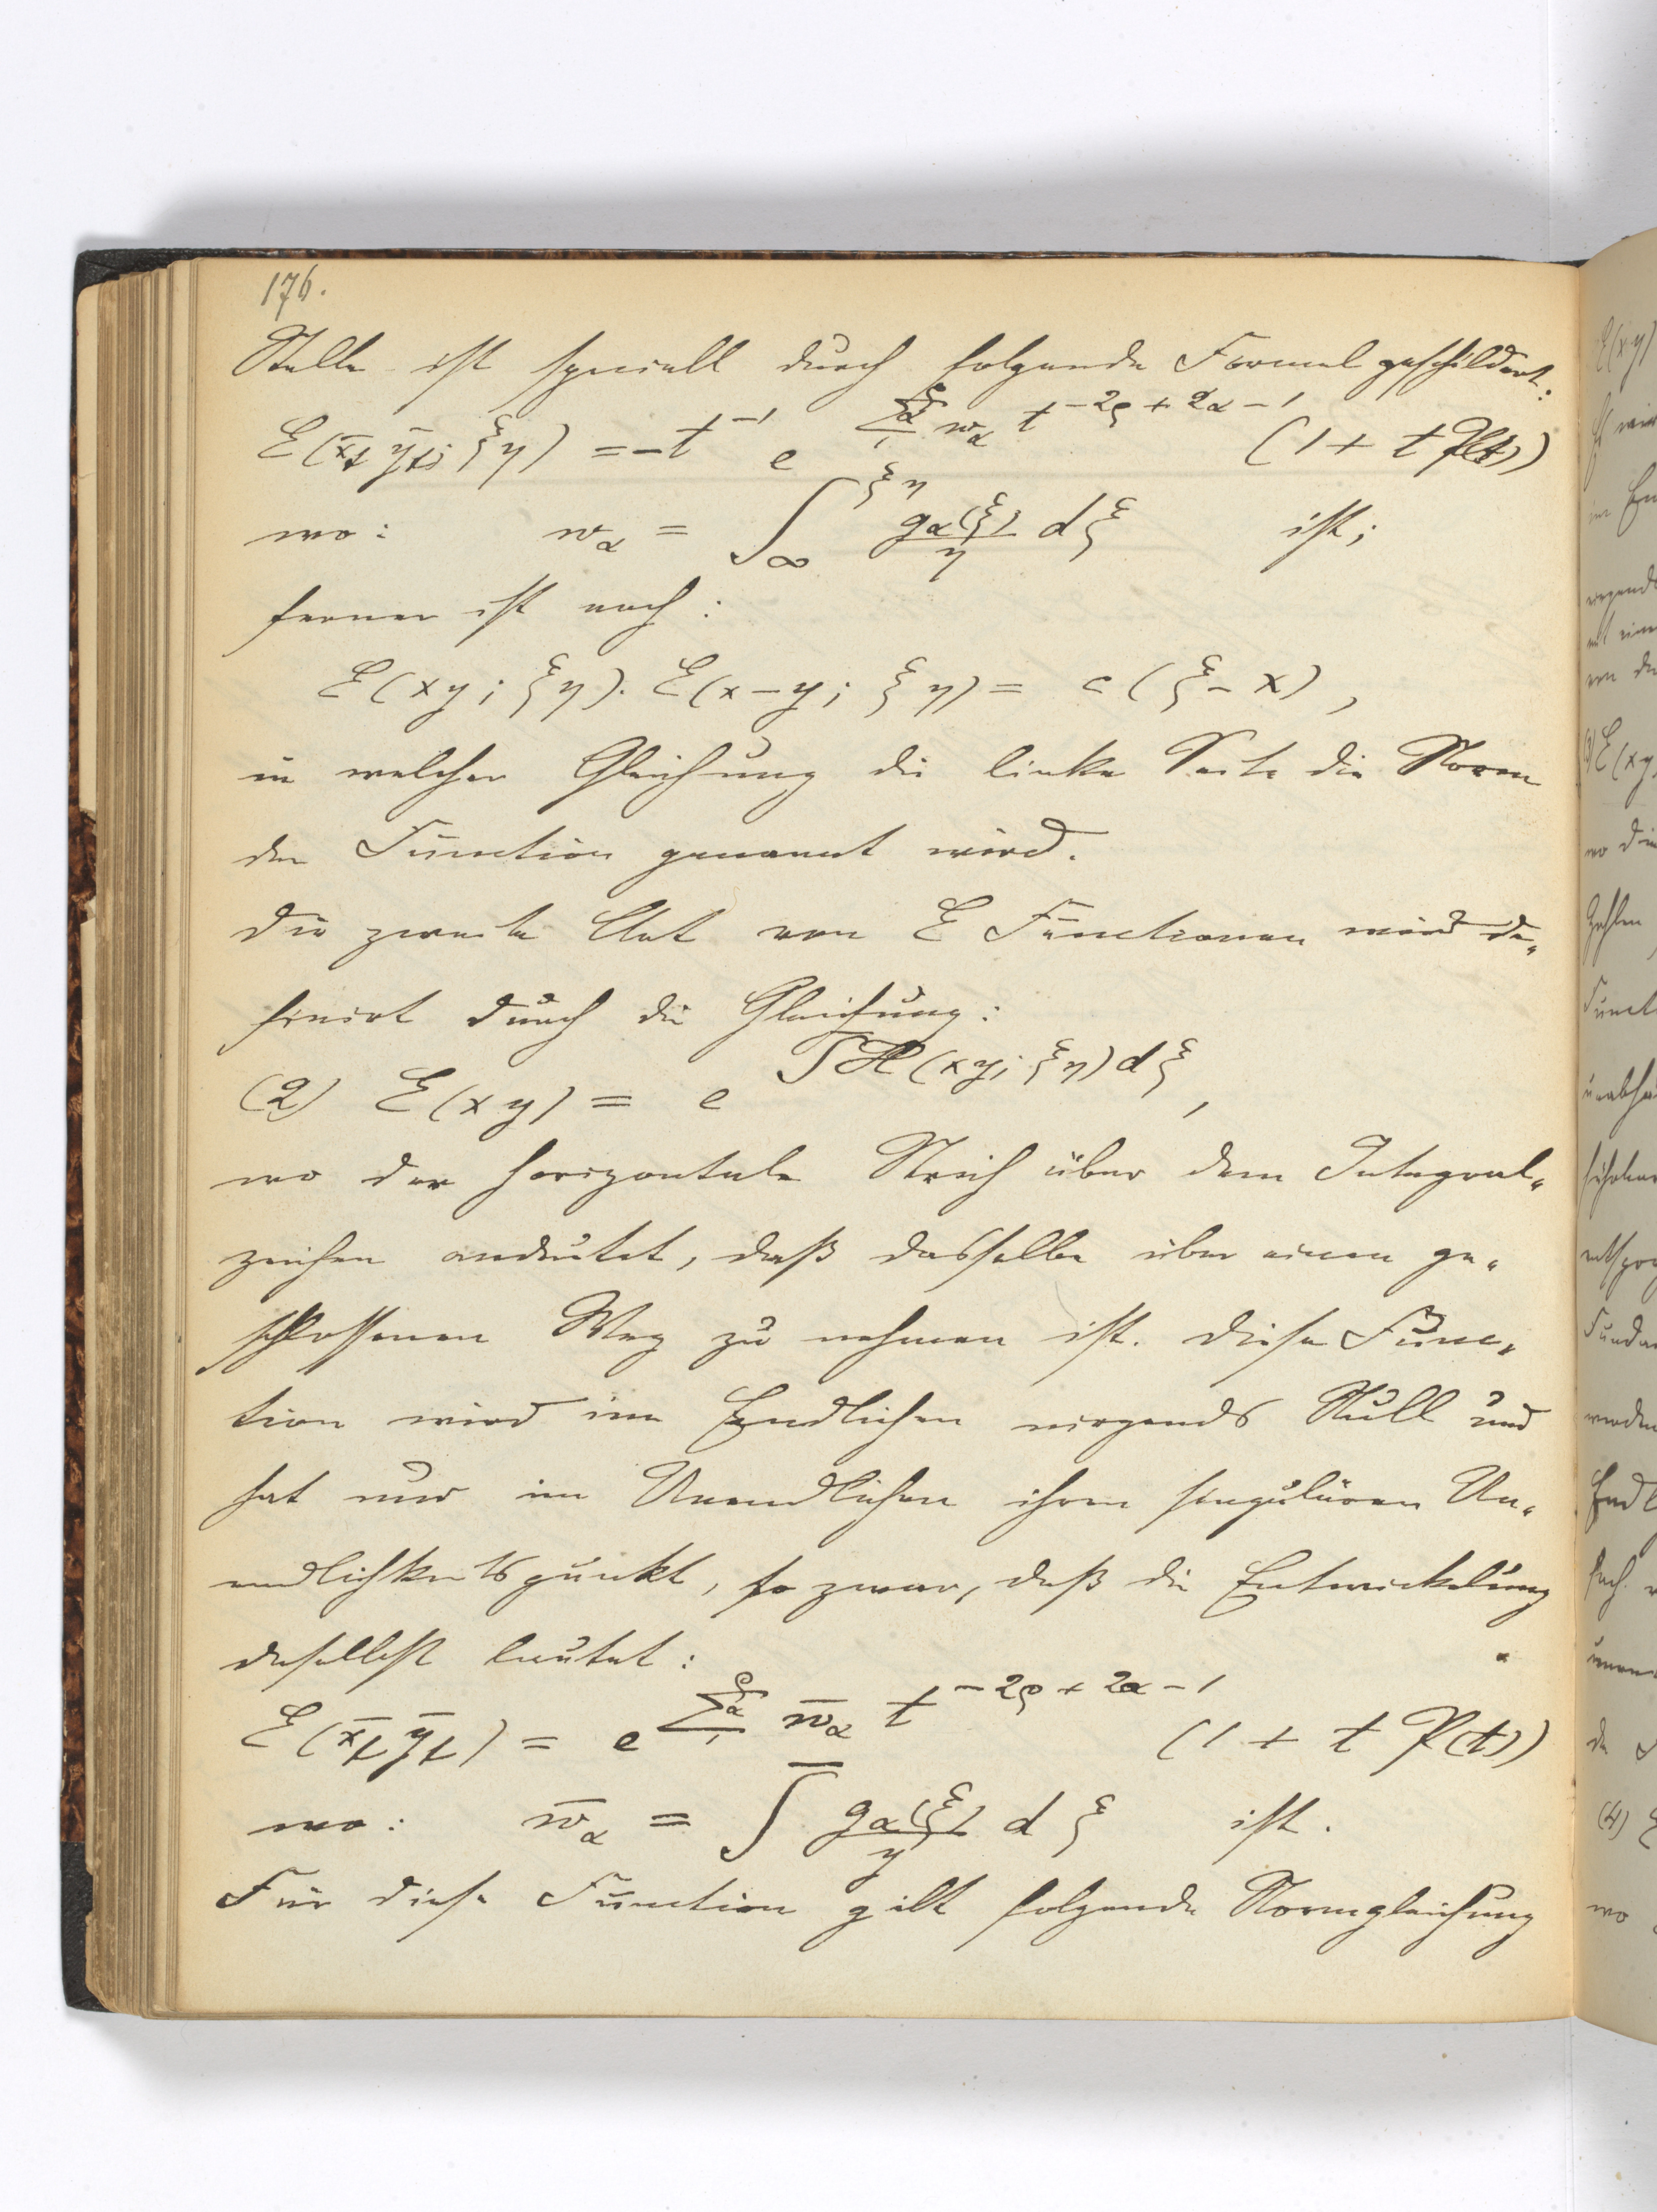 176.
Stelle ist speciell durch folgende Formel geschildert:
E(x̄_t ȳ_t; ξη) = -t^{-1} e^{∑_{1}^{ρ}{}_α w_α t^{-2ρ+2α-1}} (1 + t P(t))
wo: w_α = ∫_∞^{ξη} g_α(ξ)/η dξ ist;
ferner ist noch:
E(xy; ξη). E(x-y; ξη) = c(ξ-x),
in welcher Gleichung die linke Seite die Norm
der Function genannt wird.
Die zweite Art von E Functionen wird de-
finirt durch die Gleichung:
(2) E(xy) = e^{∫̄ H(xy; ξη)dξ},
wo der horizontale Strich über dem Integral-
zeichen andeutet, daß dasselbe über einen ge-
schlossenen Weg zu nehmen ist. Diese Func-
tion wird im Endlichen nirgends Null und
hat nur im Unendlichen ihren singulären Un-
endlichkeitspunkt, so zwar, daß die Entwickelung
daselbst lautet:
E(x̄_t ȳ_t) = e^{∑_{1}^{ρ}{}_α w̄_α t^{-2ρ+2α-1}} (1 + t P(t))
wo: w̄_α = ∫̄ g_α(ξ)/y dξ ist.
Für diese Function gilt folgende Normgleichung